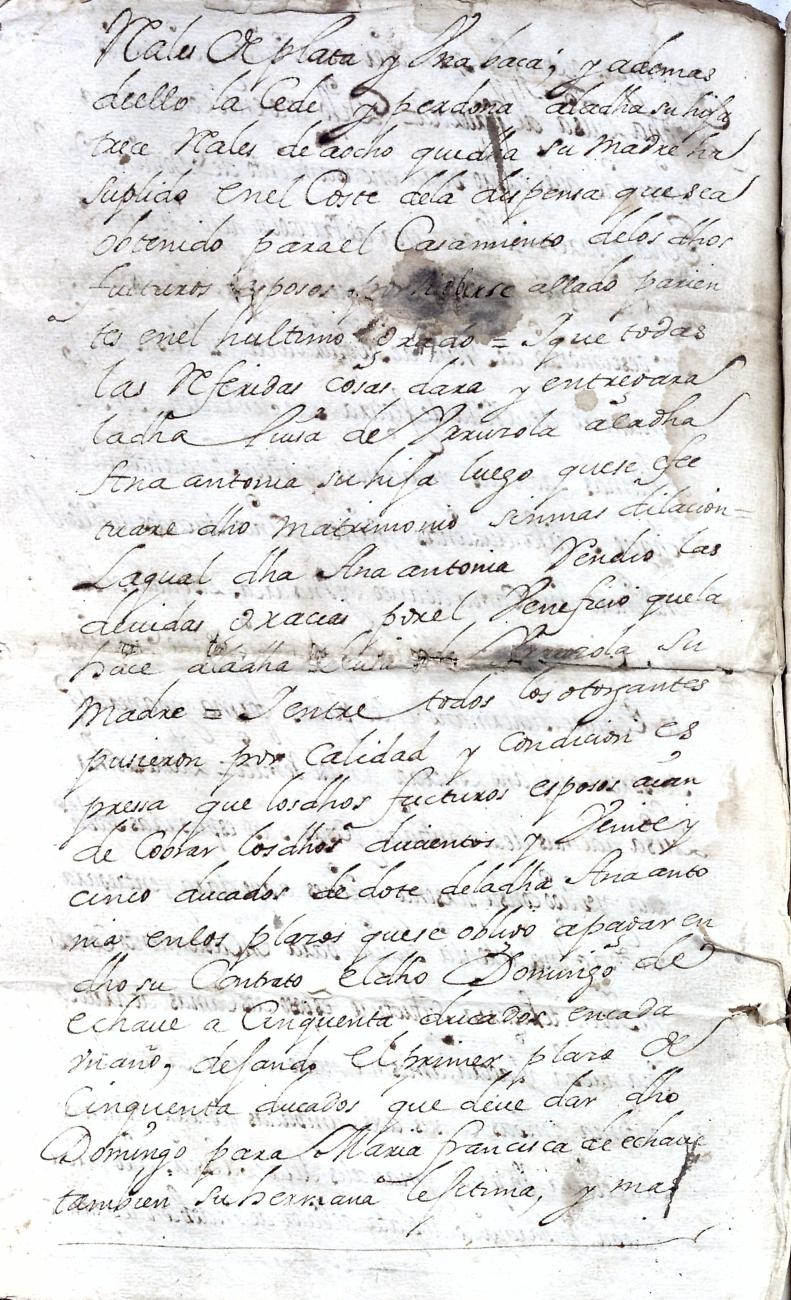 Rales de plata y Una baca; y ademas
deello la Cede y perdona aladha su hija
trece Rales de aocho que dha su Madre ha
suplido enel Coste dela dispensa que sea
obtenido parael Casamiento delos dhos
fucturos esposos por haberse allado parien
tes enel hultimo Grado = Yque todas
las Referidas cosas dara y entregara
ladha Luisa de Yrrurzola aladha
Ana antonia su hija luego quese efec
tuare dho matrimonio sinmas dilacion =
Laqual dha Ana antonia Rendio las
devidas Gracias porel Veneficio quela
hace aladha Luisa de Yrrurzola su
Madre = Yentre todos los otorgantes
pusieron por calidad y condicion es
pressa que losdhos fucturos esposos aian
de Cobrar losdhos ducientos y Veinte y
cinco ducados de dote deladha Ana anto
nia enlos plazos quese obligo apagar en
dho su Contrato eldho Domingo de
echave a Cinquenta ducados encada
vnaño, dejando el primer plazo de
Cinquenta ducados que deve dar dho
Domingo para Maria francisca de echave
tambien su hermana lejitima, y mas